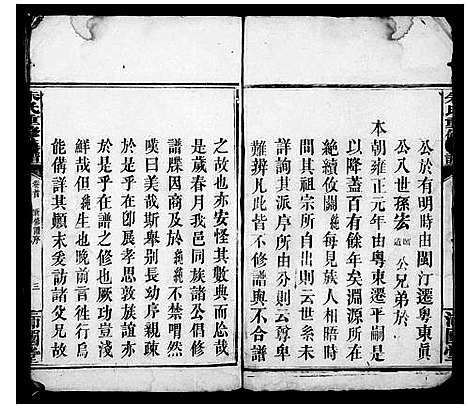 公於有明時由閩汀遷粵東眞
公八世孫宏道公兄弟於
本朝雍正元年由粵東遷平嗣是
以降蓋百有餘年矣淵源所在
絶續攸關純每見族人相睹時
問其祖宗所自出則云世系未
詳詢其派序所由分則云尊卑
難辨凡此皆不修譜與不合譜
之故也亦安怪其數典而忘哉
是歲春月我邑同族諸公倡修
譜牒因商及於純純不禁喟然
嘆曰美哉斯舉別長幼序親疎
於是乎在卽展孝思敦族誼亦
於是乎在譜之修也厥功豈淺
鮮哉但純生也晚前言徃行烏
能備詳其顚末爰訪諸父兄故
卷首
三